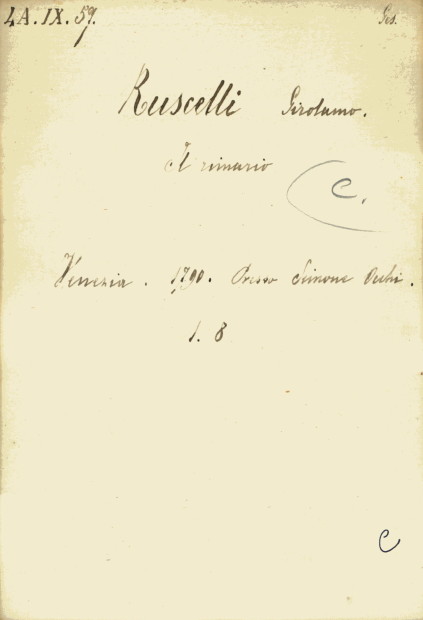 4A.IX.59. Ges.
Ruscelli Girolamo.
Il rimario
C.
Venezia. 1790. Presso Simone Occhi.
1. 8
C